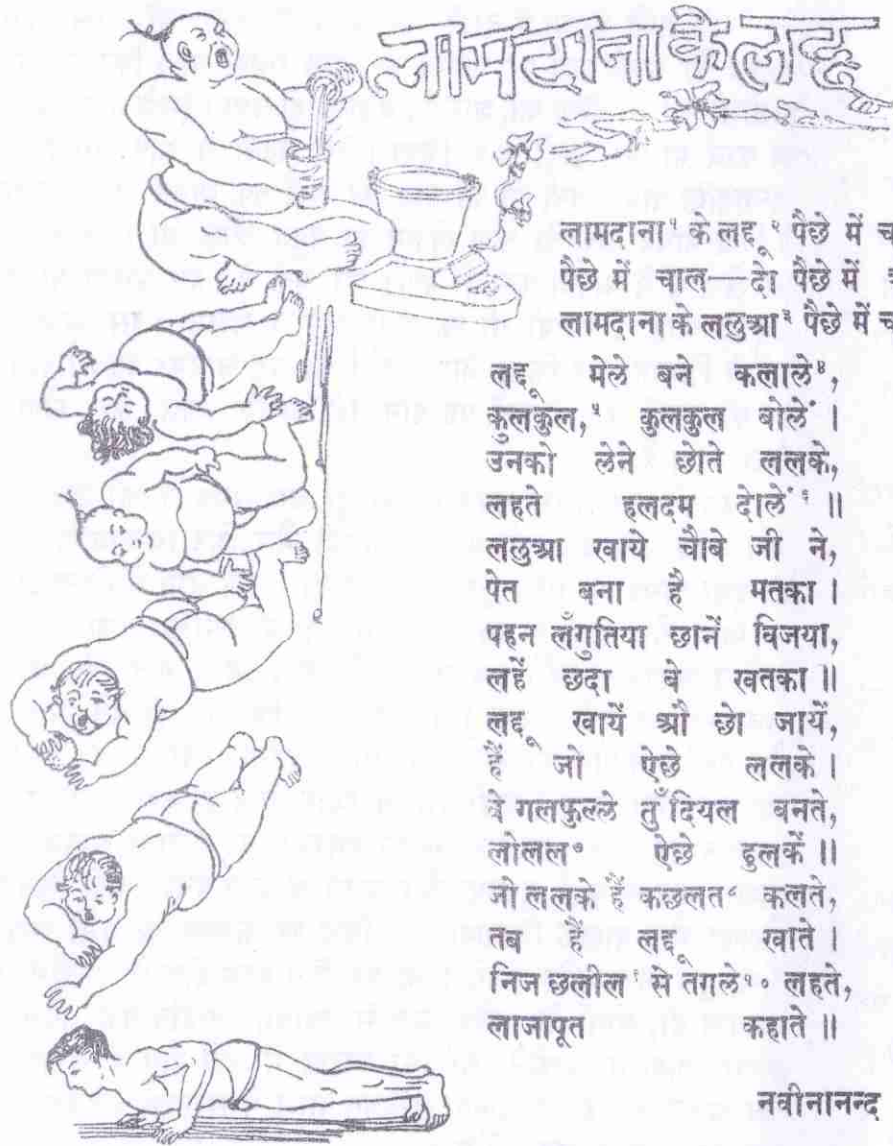 लामदाना के लद्दू
लामदाना¹ के लद्दू² पैछे में
पैछे में चाल—दो पैछे में
लामदाना के ललुआ³ पैछे में
लद्दू मेले बने कलाले⁴,
कुलकुल,⁵ कुलकुल बोलें ।
उनको लेने छोते ललके,
लहते हलदम दोलें⁶ ॥
ललुआ खाये चौबे जी ने,
पेत बना है मतका ।
पहन लँगुतिया छानें विजया,
लहें छदा बे खतका ॥
लद्दू खायें औ छो जायें,
हैं जो ऐछे ललके ।
वे गलफुल्ले तुँदियल बनते,
लोलल⁷ ऐछे ढुलकें ॥
जो ललके हैं कछलत⁸ कलते,
तब हैं लद्दू खाते ।
निज छलील⁹ से तगले¹⁰ लहते,
लाजापूत कहाते ॥
नवीनानन्द